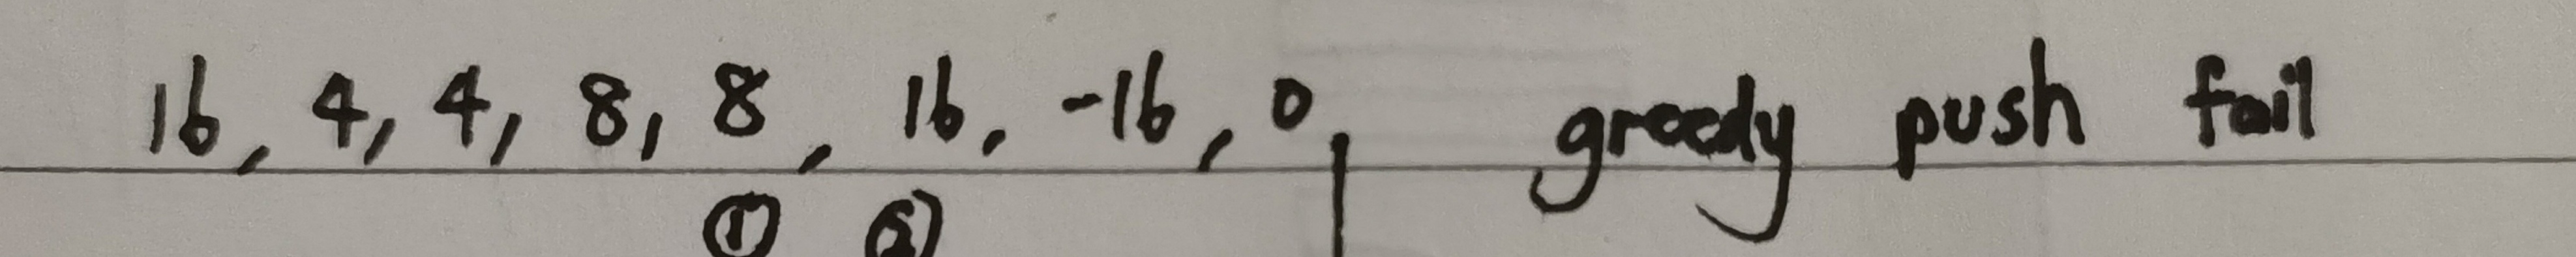 16, 4, 4, 8, 8, 16, -16, 0, greedy push fail
① ②